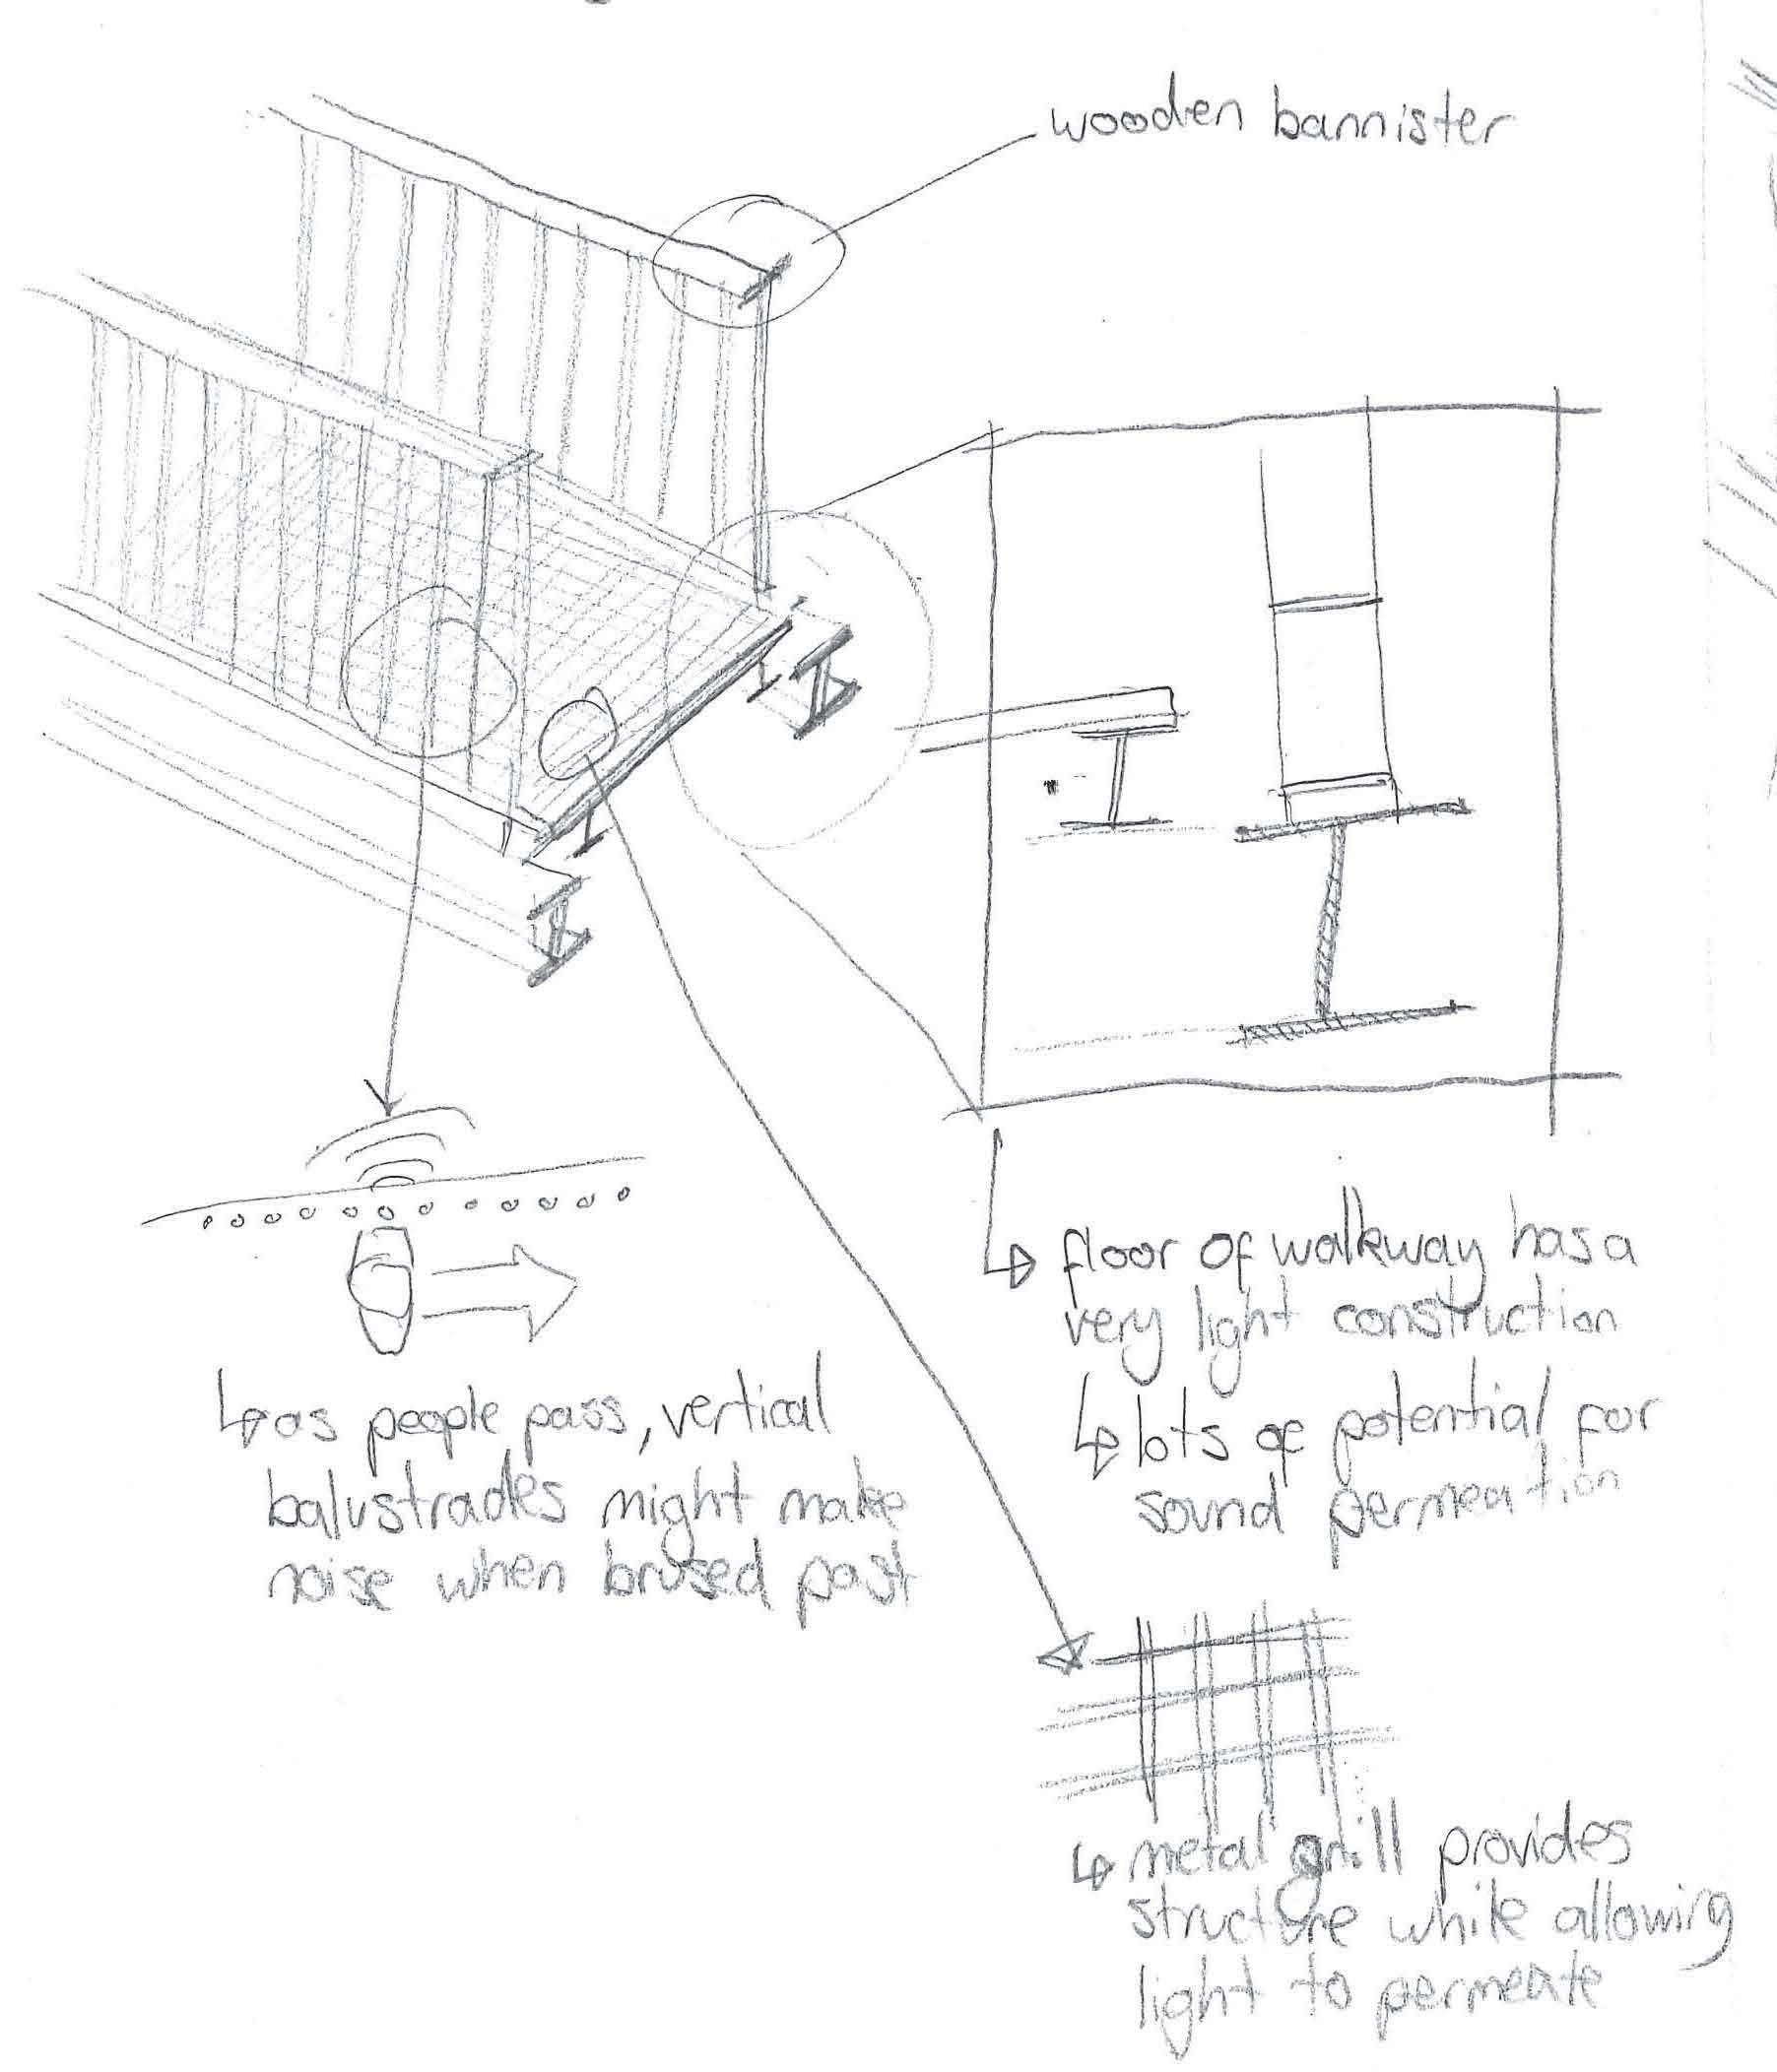 wooden bannister
floor of walkway has a
very light construction
lots of potential for
sound permeation
as people pass, vertical
balustrades might make
noise when brused past
metal grill provides
structure while allowing
light to permeate